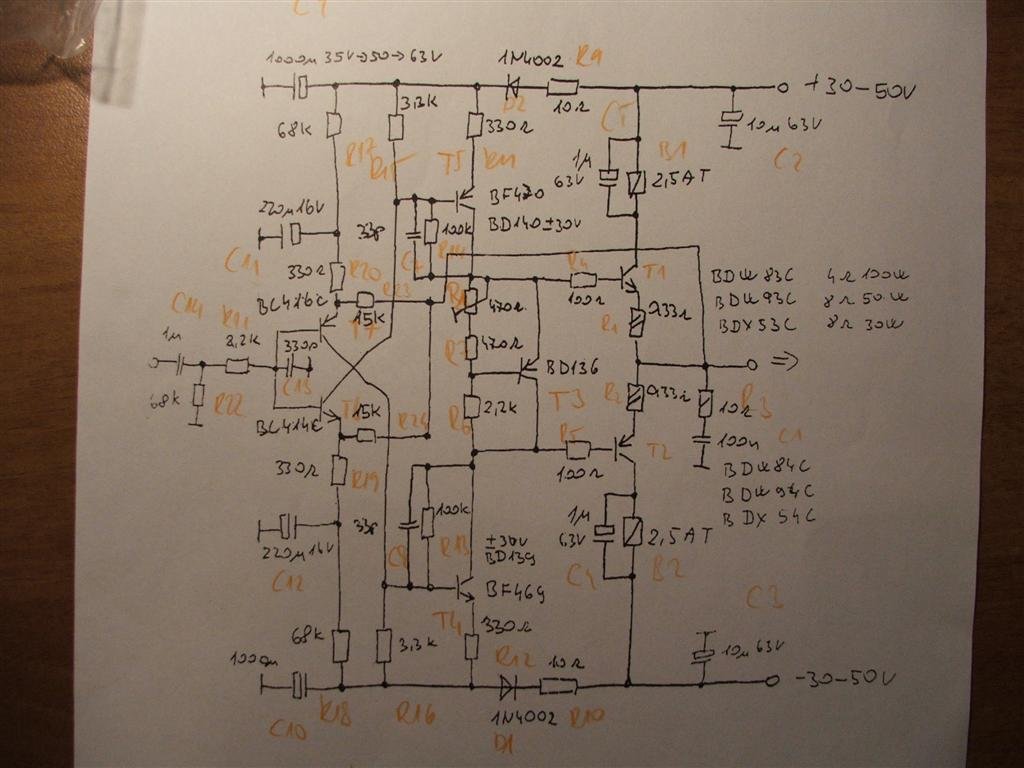 C9
1000µ 35V→50→63V
1N4002
R9
D2
10Ω
+30-50V
68K
3,3K
330Ω
C5
10µ 63V
R17
R15
T5
R11
1µ
63V
B1
2,5AT
C2
220µ16V
33p
100K
BF470
BD140±30V
C11
C7
R14
R4
T1
BDW 83C 4Ω 100W
330Ω
R20
R23
R8
470Ω
100Ω
0,33Ω
BDW 93C 8Ω 50W
C14
BC416C
15K
R1
BDX 53C 8Ω 30W
1µ
8,2K
330p
T7
R7
470Ω
BD136
C13
68K
R22
T6
15K
R24
2,2K
R6
T3
R2
0,33Ω
10Ω
R3
BC414C
R5
T2
100n
C1
330Ω
R19
100Ω
BDW 84C
BDW 94C
BDX 54C
33p
100K
R13
±30V
BD139
1µ
63V
2,5AT
220µ16V
C12
C8
BF469
C4
B2
C3
T4
68K
3,3K
330Ω
R12
10Ω
10µ 63V
1000µ
-30-50V
C10
R18
R16
1N4002
R10
D1